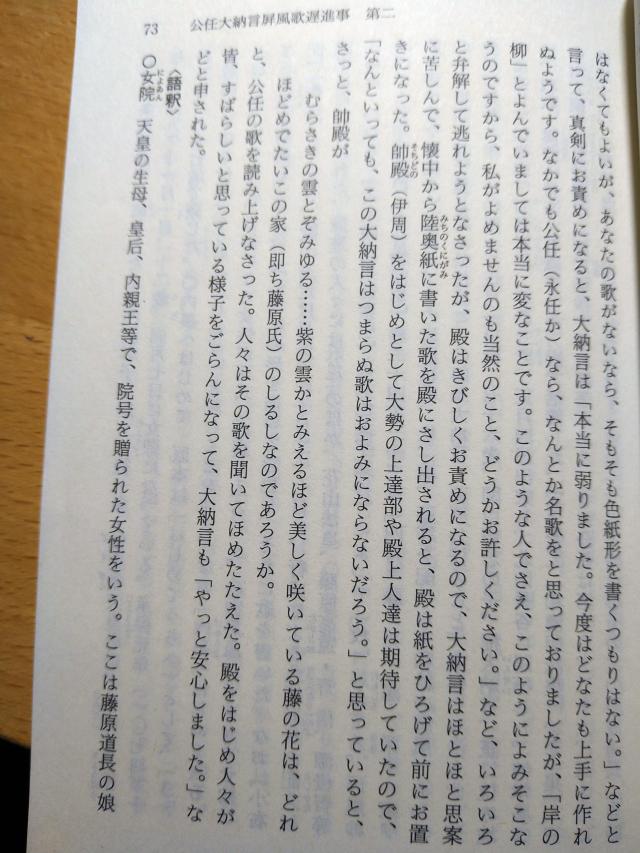 はなくてもよいが、あなたの歌がないなら、そもそも色紙形を書くつもりはない。」などと
言って、真剣にお責めになると、大納言は「本当に弱りました。今度はどなたも上手に作れ
ぬようです。なかでも公任（永任か）なら、なんとか名歌をと思っておりましたが、「岸の
柳」とよんでいましては本当に変なことです。このような人でさえ、このようによみそこな
うのですから、私がよめませんのも当然のこと、どうかお許しください。」など、いろいろ
と弁解して逃れようとなさったが、殿はきびしくお責めになるので、大納言はほとほと思案
に苦しんで、懐中から陸奥紙に書いた歌を殿にさし出されると、殿は紙をひろげて前にお置
みちのくにがみ
きになった。帥殿（伊周）をはじめとして大勢の上達部や殿上人達は期待していたので、
そちどの
「なんといっても、この大納言はつまらぬ歌はおよみにならないだろう。」と思っていると、
さっと、帥殿が
むらさきの雲とぞみゆる……紫の雲かとみえるほど美しく咲いている藤の花は、どれ
ほどめでたいこの家（即ち藤原氏）のしるしなのであろうか。
と、公任の歌を読み上げなさった。人々はその歌を聞いてほめたたえた。殿をはじめ人々が
皆、すばらしいと思っている様子をごらんになって、大納言も「やっと安心しました。」な
どと申された。
〈語釈〉
〇女院　天皇の生母、皇后、内親王等で、院号を贈られた女性をいう。ここは藤原道長の娘
にょあん
73　公任大納言屏風歌遅進事　第二